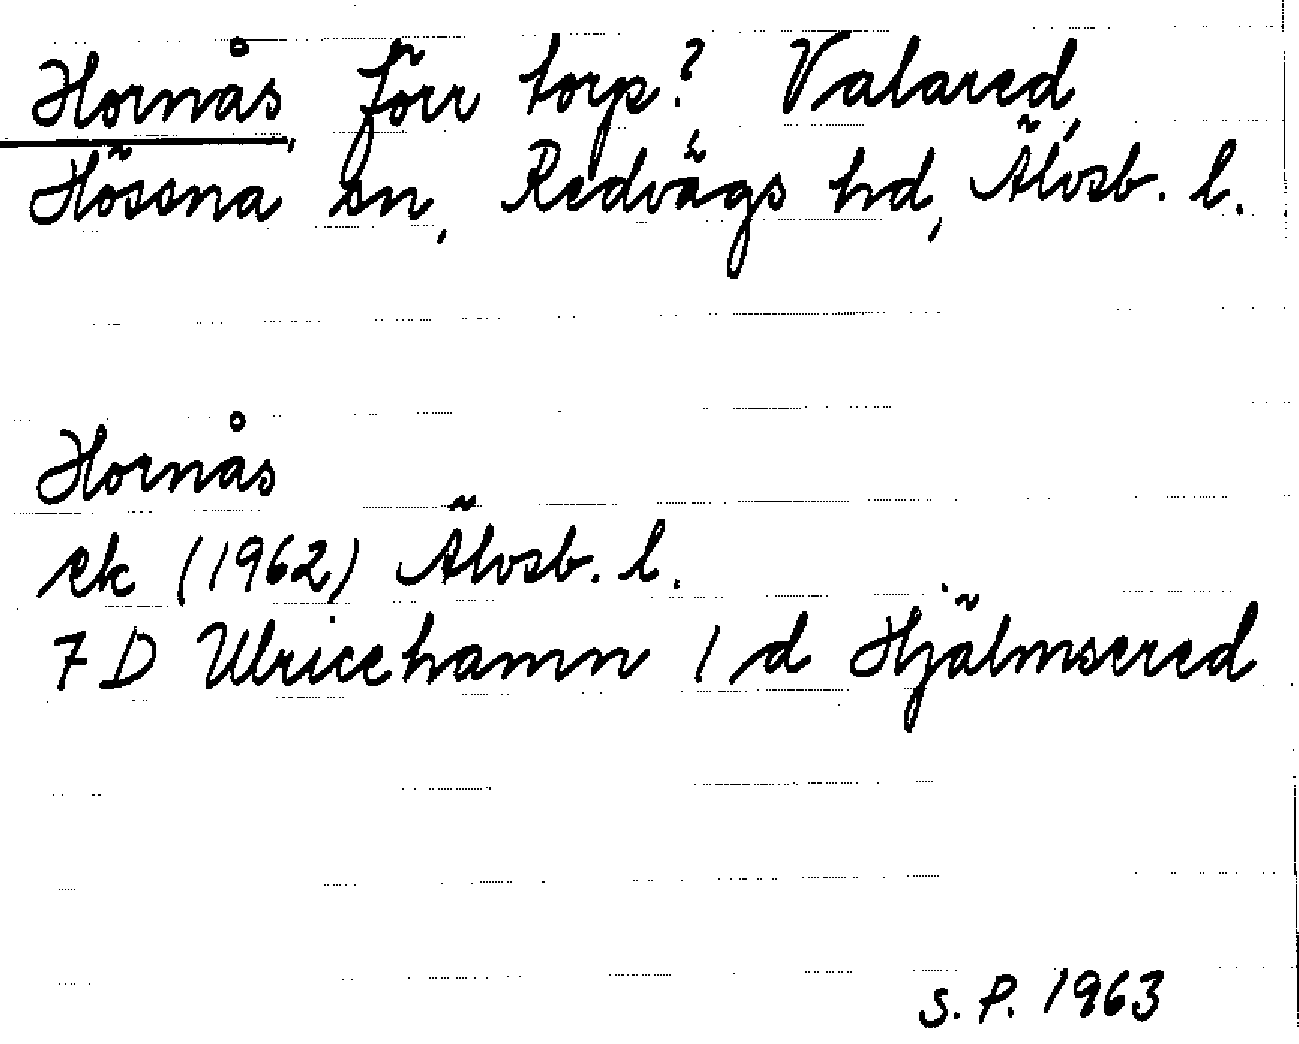 Hornås, förr torp? Valared,
Hössna sn, Redvägs hd, Älvsb. l.
Hornås
ek (1962) Älvsb. l.
7 D Ulricehamn 1 d Hjälmsered
S. P. 1963